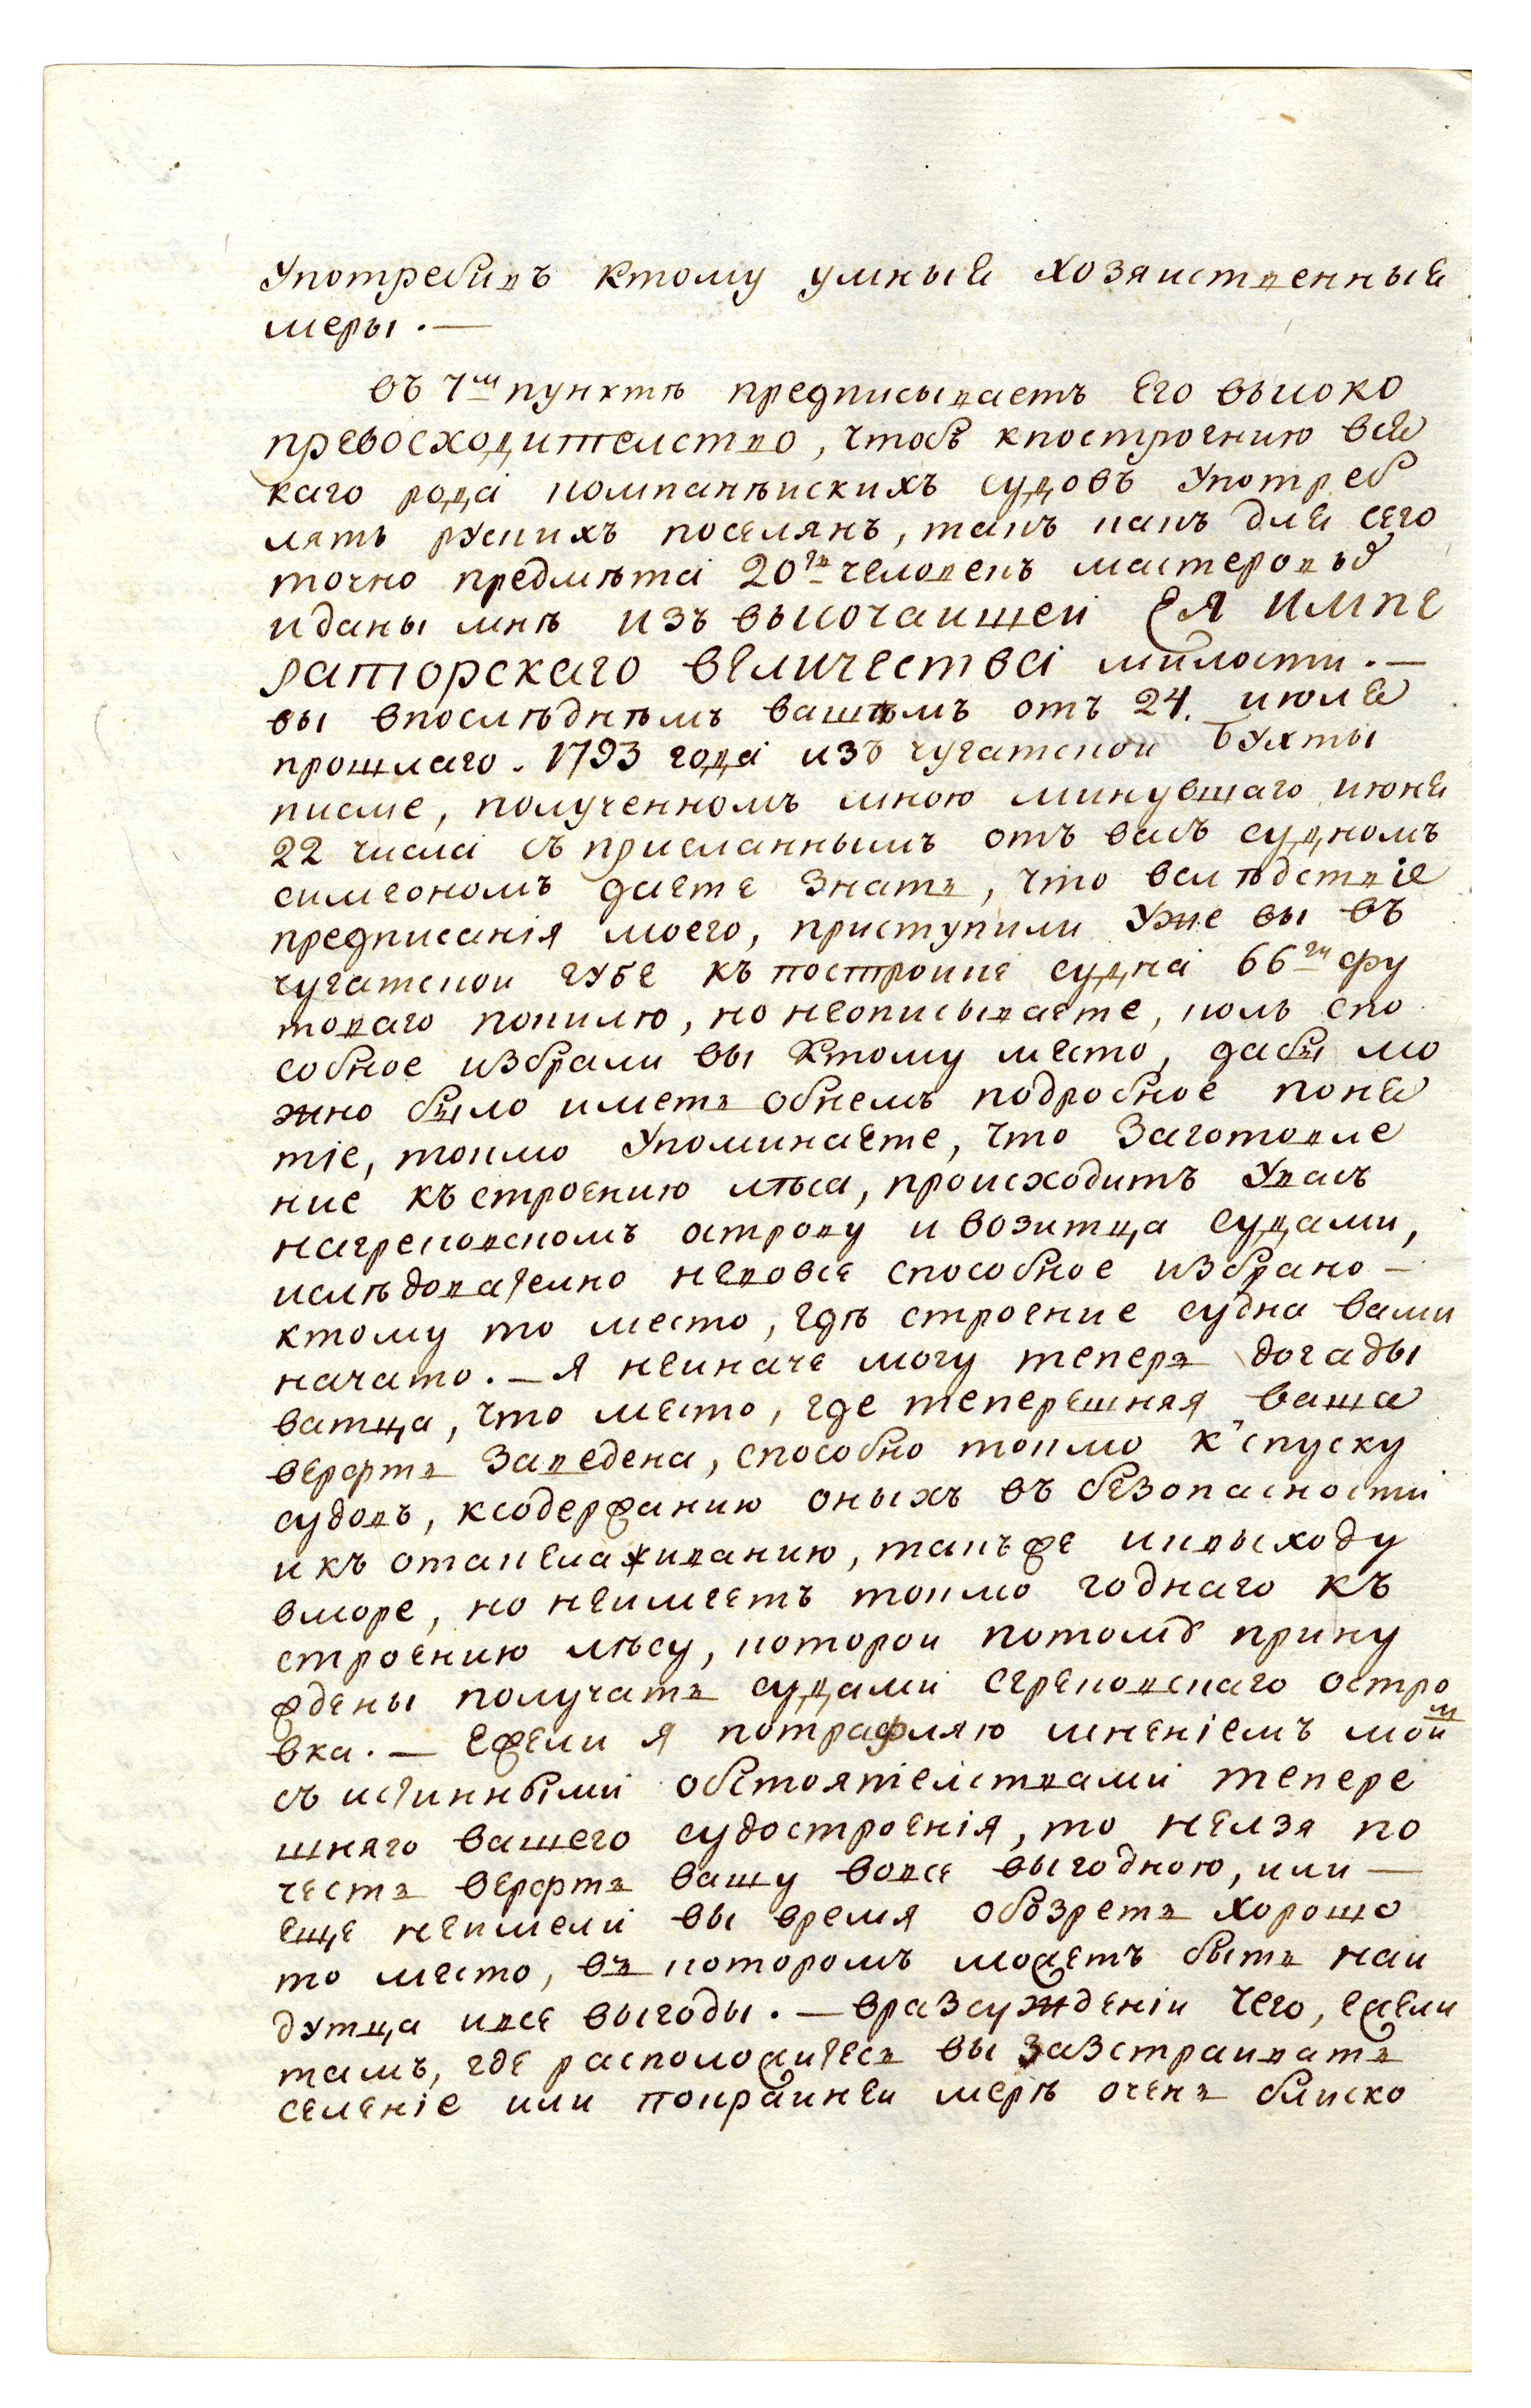 Употребивъ ктому умныя хозяиственныя
меры. —
въ 7м пунктѣ предписываетъ Его высоко
превосходителство, чтобъ кпостроению вся
каго рода компанѣискихъ судовъ Употреб
лять рускихъ поселянъ, такъ какъ для сего
точно предмѣта 20ть человекъ мастеровъ
иданы мнѣ изъ высочаишей ЕЯ ИМПЕ
раторскаго величества милости. —
вы впослѣднѣмъ вашѣмъ отъ 24. июля
прошлаго. 1793 года изъ чугатскои Бухты
писме, полученномъ мною минувшаго июня
22 числа съ присланнымъ отъ васъ судномъ
симеономъ даете знать, что вслѣдствіе
предписанія моего, приступили Уже вы въ
чугатскои губе къ построике судна 66ти фу
товаго покилю, но неописываете, коль спо
собное избрали вы ктому место, дабы мо
жно было иметь обнемъ подробное поня
тіе, токмо Упоминаете, что Заготовле
ние къ строению лѣса, происходитъ Увасъ
нагрековскомъ острову и возитца судами,
ислѣдователно невовсе способное избрано —
ктому то место, гдѣ строение судна вами
начато. — Я неиначе могу теперь догады
ватца, что место, где теперешняя ваша
верфть Заведена, способно токмо к спуску
судовъ, ксодержанию оныхъ въ безопасности
и къ отакелаживанию, такъ же иквыходу
вморе, но неимеетъ токмо годнаго къ
строению лѣсу, которои потомъ прину
ждены получать судами сгрековскаго остро
вка. — Ежели я потрафляю мненіемъ моим
съ истинными обстоятелствами тепере
шняго вашего судостроенія, то нелзя по
честь верфть вашу вовсе выгодною, или —
еще неимели вы время обозреть хорошо
то место, въ которомъ можетъ быть наи
дутца ивсе выгоды. — вразсужденіи чего, ежели
тамъ, где расположитесь вы заЗстраивать
селеніе или покраинеи мерѣ очень блиско